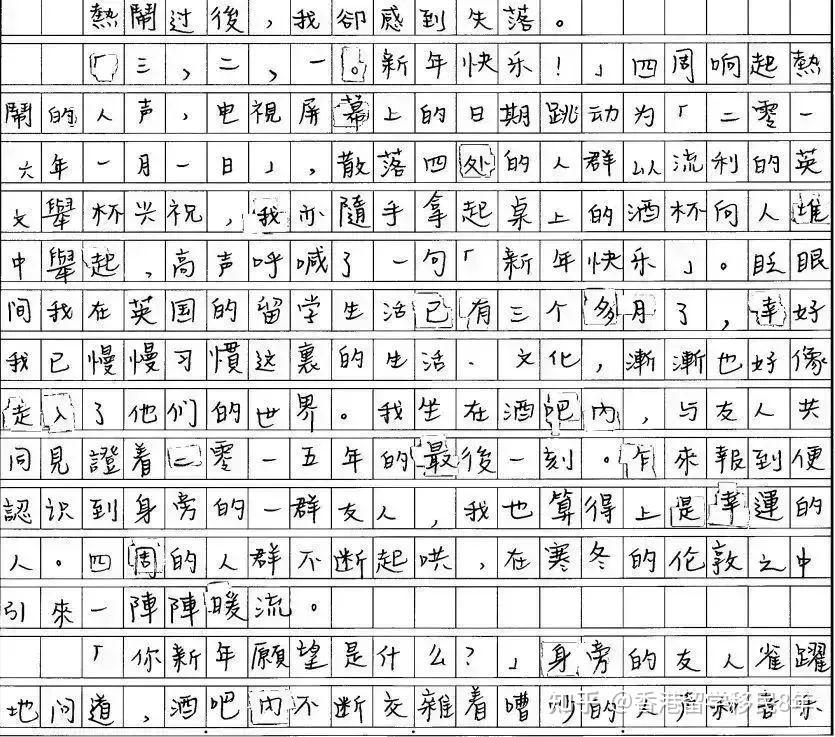 熱鬧过後，我卻感到失落。
「三，二，一。新年快乐！」四周响起熱
鬧的人声，电視屏幕上的日期跳动为「二零一
六年一月一日」，散落四处的人群以流利的英
文舉杯兴祝，我亦隨手拿起桌上的酒杯向人堆
中舉起，高声呼喊了一句「新年快乐」。眨眼
间我在英国的留学生活已有三个多月了，幸好
我已慢慢习慣这裏的生活、文化，漸漸也好像
走入了他们的世界。我坐在酒吧內，与友人共
同見證着二零一五年的最後一刻。乍來報到便
認识到身旁的一群友人，我也算得上是幸運的
人。四周的人群不断起哄，在寒冬的伦敦之中
引來一陣陣暖流。
「你新年願望是什么？」身旁的友人雀躍
地问道，酒吧內不断交雜着嘈吵的人声和音乐
知乎 @香港留学移民8年